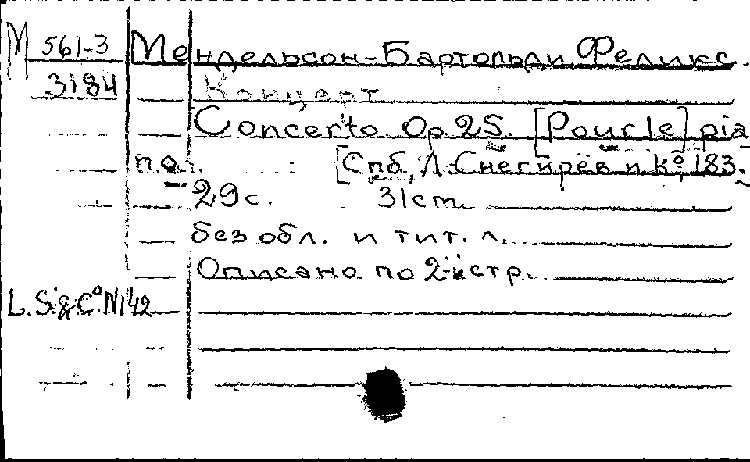 М 561-3 Мендельсон-Бартольди Феликс.
3184 Концерт
Concerto Op 25. [Pour le] pia
no. [Спб, Л. Снегирев и К°, 183.
29 с. 31 cm.
без обл. и тит. л.
Описано по 2-й стр.
L. S. & C° N 142